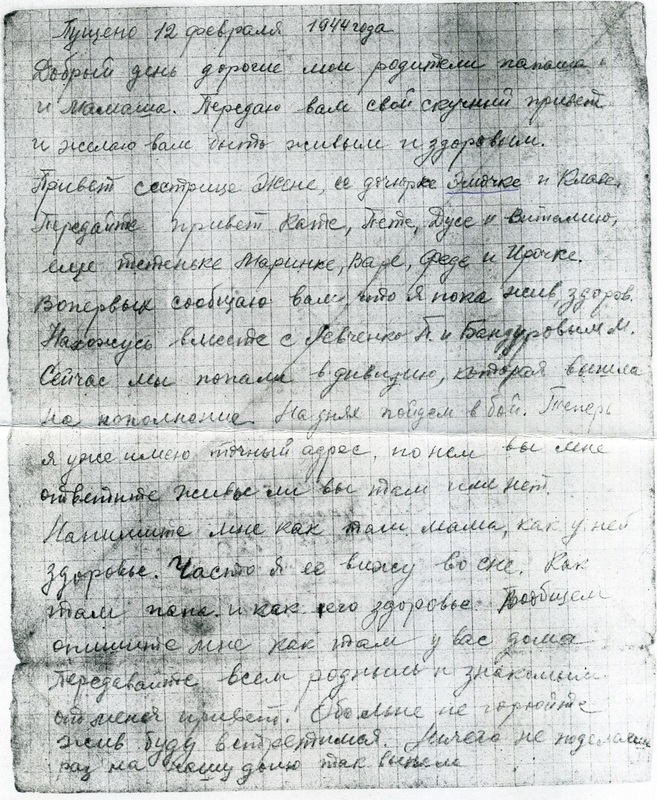 Пущено 12 февраля 1944 года
Добрый день дорогие мои родители папаша
и мамаша. Передаю вам свой скучний привет
и желаю вам быть живым и здоровым.
Привет сестрице Жене, ее дочюрке Эмочке и Клаве.
Передайте привет Кате, Пете, Дусе и Виталию,
еще тетеньке Маринке, Варе, Феде и Ирочке.
Вопервых сообщаю вам что я пока жив, здоров.
Нахожусь вместе с Левченко П. и Бандуровым М.
Сейчас мы попали в дивизию, которая вышла
на пополнение. На днях пойдем в бой. Теперь
я уже имею точный адрес, по нем вы мне
ответите живы ли вы там или нет.
Напишите мне как там мама, как у ней
здоровье. Часто я ее вижу во сне. Как
там папа и как его здоровье. Вообщем
опишите мне как там у вас дома
Передавайте всем родным и знакомым
от меня привет. Обо мне не горюйте
жив буду встретимся. Ничего не поделаеш
раз на нашу долю так выпало